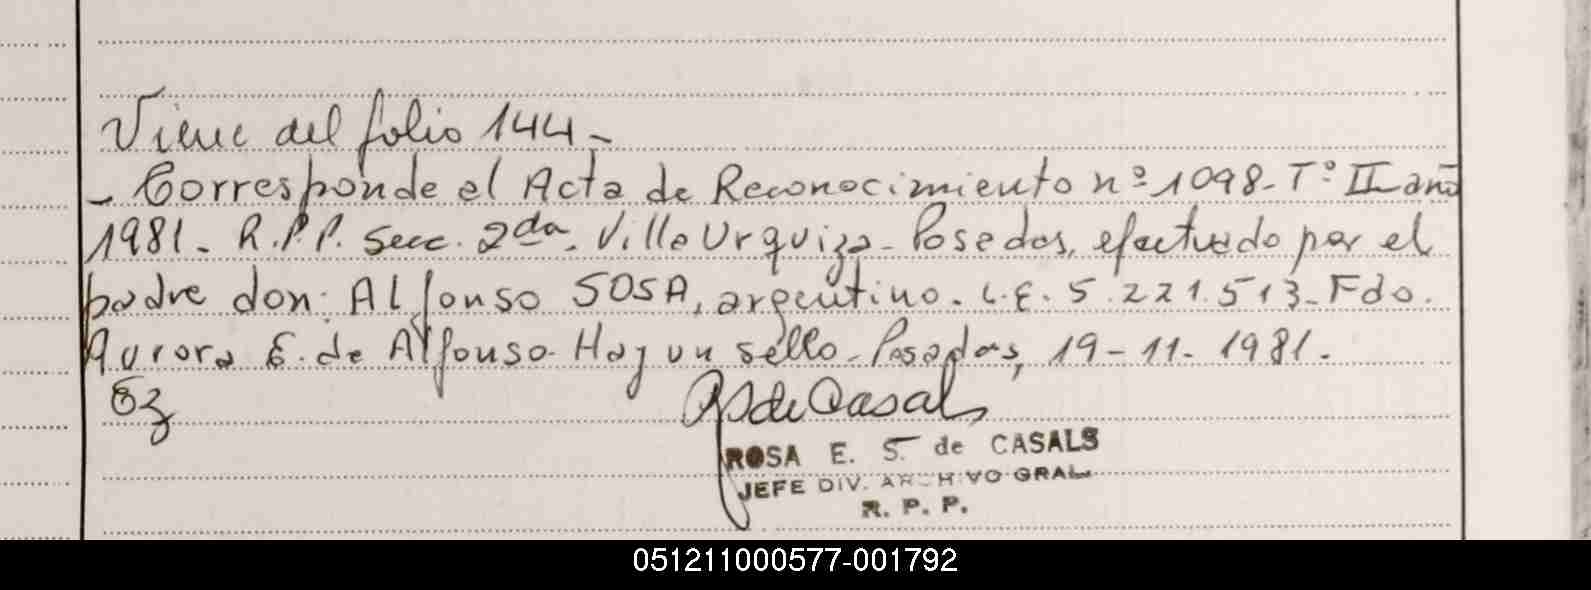 Viene del folio 144-
- Corresponde el Acta de Reconocimiento nº 1098- Tº II año
1981- R.P.P. Secc. 2da. Villa Urquiza- Posadas, efectuado por el
padre don: Alfonso SOSA, argentino. L.E. 5.221.513- Fdo.
Aurora E. de Alfonso- Hay un sello- Posadas, 19-11-1981.
RS de Casals
ROSA E. S. de CASALS
JEFE DIV. ARCHIVO GRAL
R. P. P.
051211000577-001792